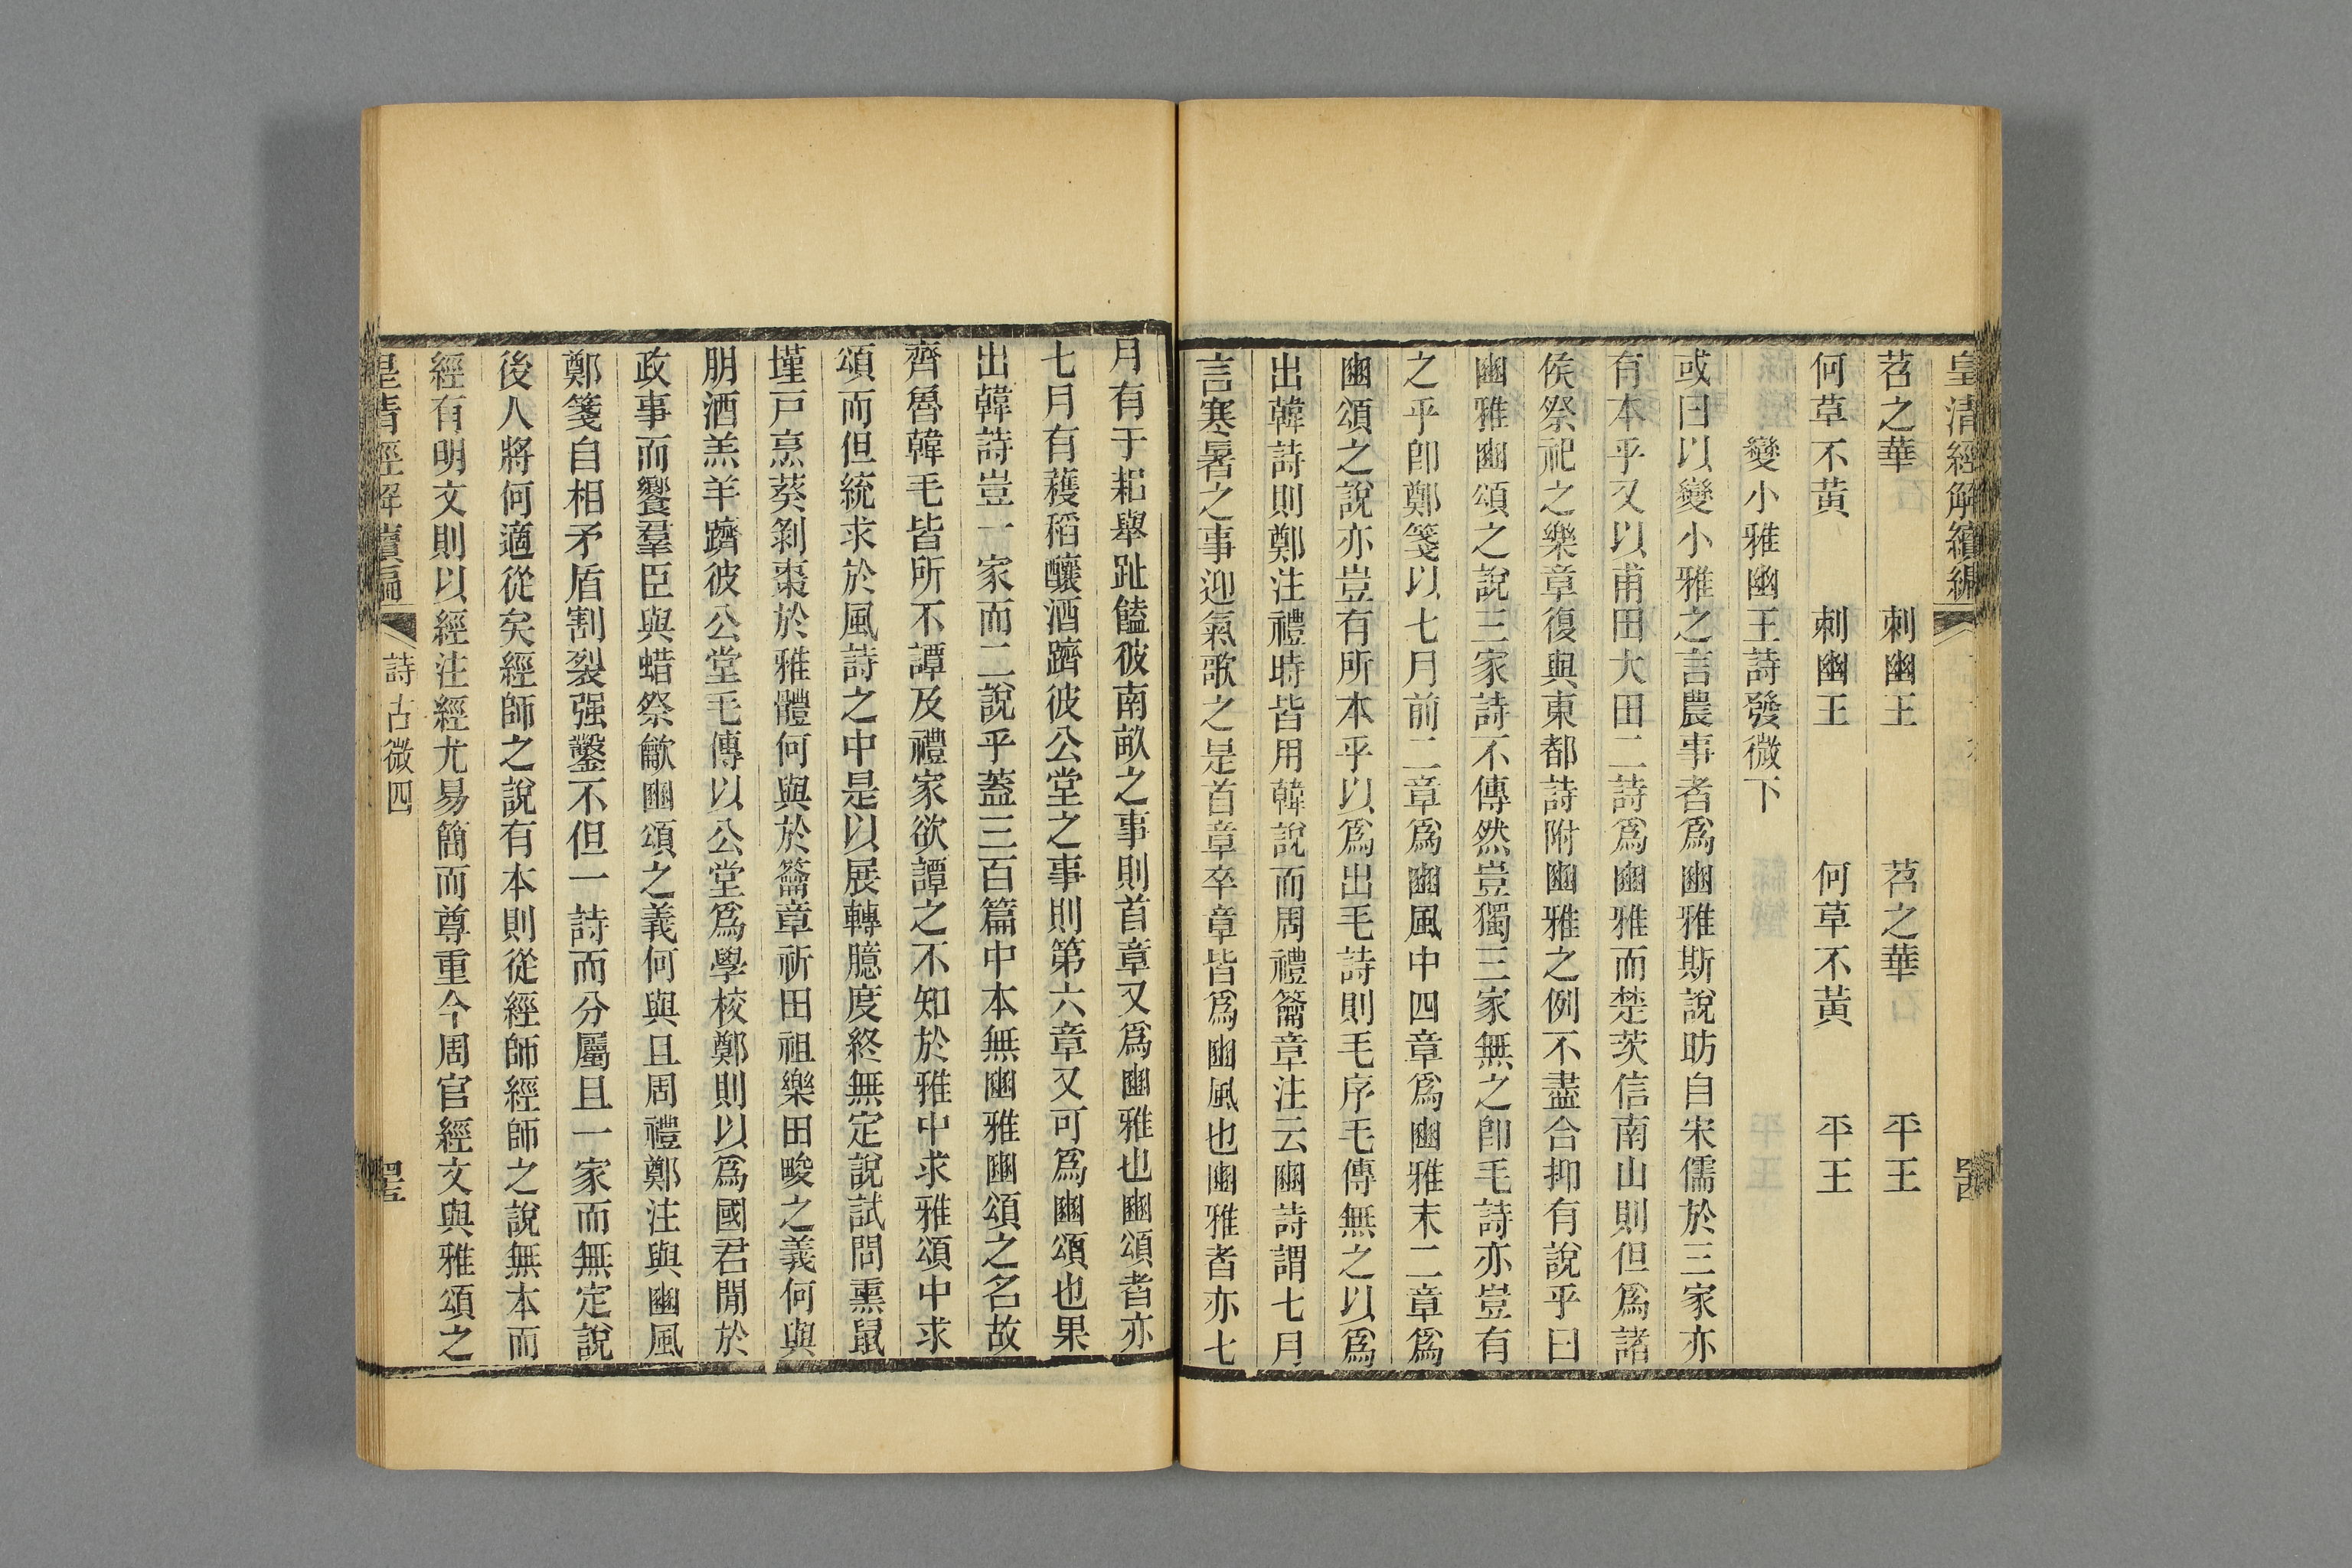 皇清經解續編
苕之華　刺幽王　苕之華　平王
何草不黃　刺幽王　何草不黃　平王
變小雅幽王詩發微下
或曰以變小雅之言農事者爲豳雅斯說昉自宋儒於三家亦
有本乎又以甫田大田二詩爲豳雅而楚茨信南山則但爲諸
侯祭祀之樂章復與東都詩附豳雅之例不盡合抑有說乎曰
豳雅豳頌之說三家詩不傳然豈獨三家無之卽毛詩亦豈有
之乎卽鄭箋以七月前二章爲豳風中四章爲豳雅末二章爲
豳頌之說亦豈有所本乎以爲出毛詩則毛序毛傳無之以爲
出韓詩則鄭注禮時皆用韓說而周禮籥章注云豳詩謂七月
言寒暑之事迎氣歌之是首章卒章皆爲豳風也豳雅者亦七
月有于耜舉趾饁彼南畝之事則首章又爲豳雅也豳頌者亦
七月有穫稻釀酒躋彼公堂之事則第六章又可爲豳頌也果
出韓詩豈一家而二說乎蓋三百篇中本無豳雅豳頌之名故
齊魯韓毛皆所不譚及禮家欲譚之不知於雅中求雅頌中求
頌而但統求於風詩之中是以展轉臆度終無定說試問熏鼠
墐戸烹葵剝棗於雅體何與於籥章祈田祖樂田畯之義何與
朋酒羔羊躋彼公堂毛傳以公堂爲學校鄭則以爲國君閒於
政事而饗羣臣與蜡祭龡豳頌之義何與且周禮鄭注與豳風
鄭箋自相矛盾割裂强鑿不但一詩而分屬且一家而無定說
後人將何適從矣經師之說有本則從經師經師之說無本而
經有明文則以經注經尤易簡而尊重今周官經文與雅頌之
皇清經解續編　詩古微四